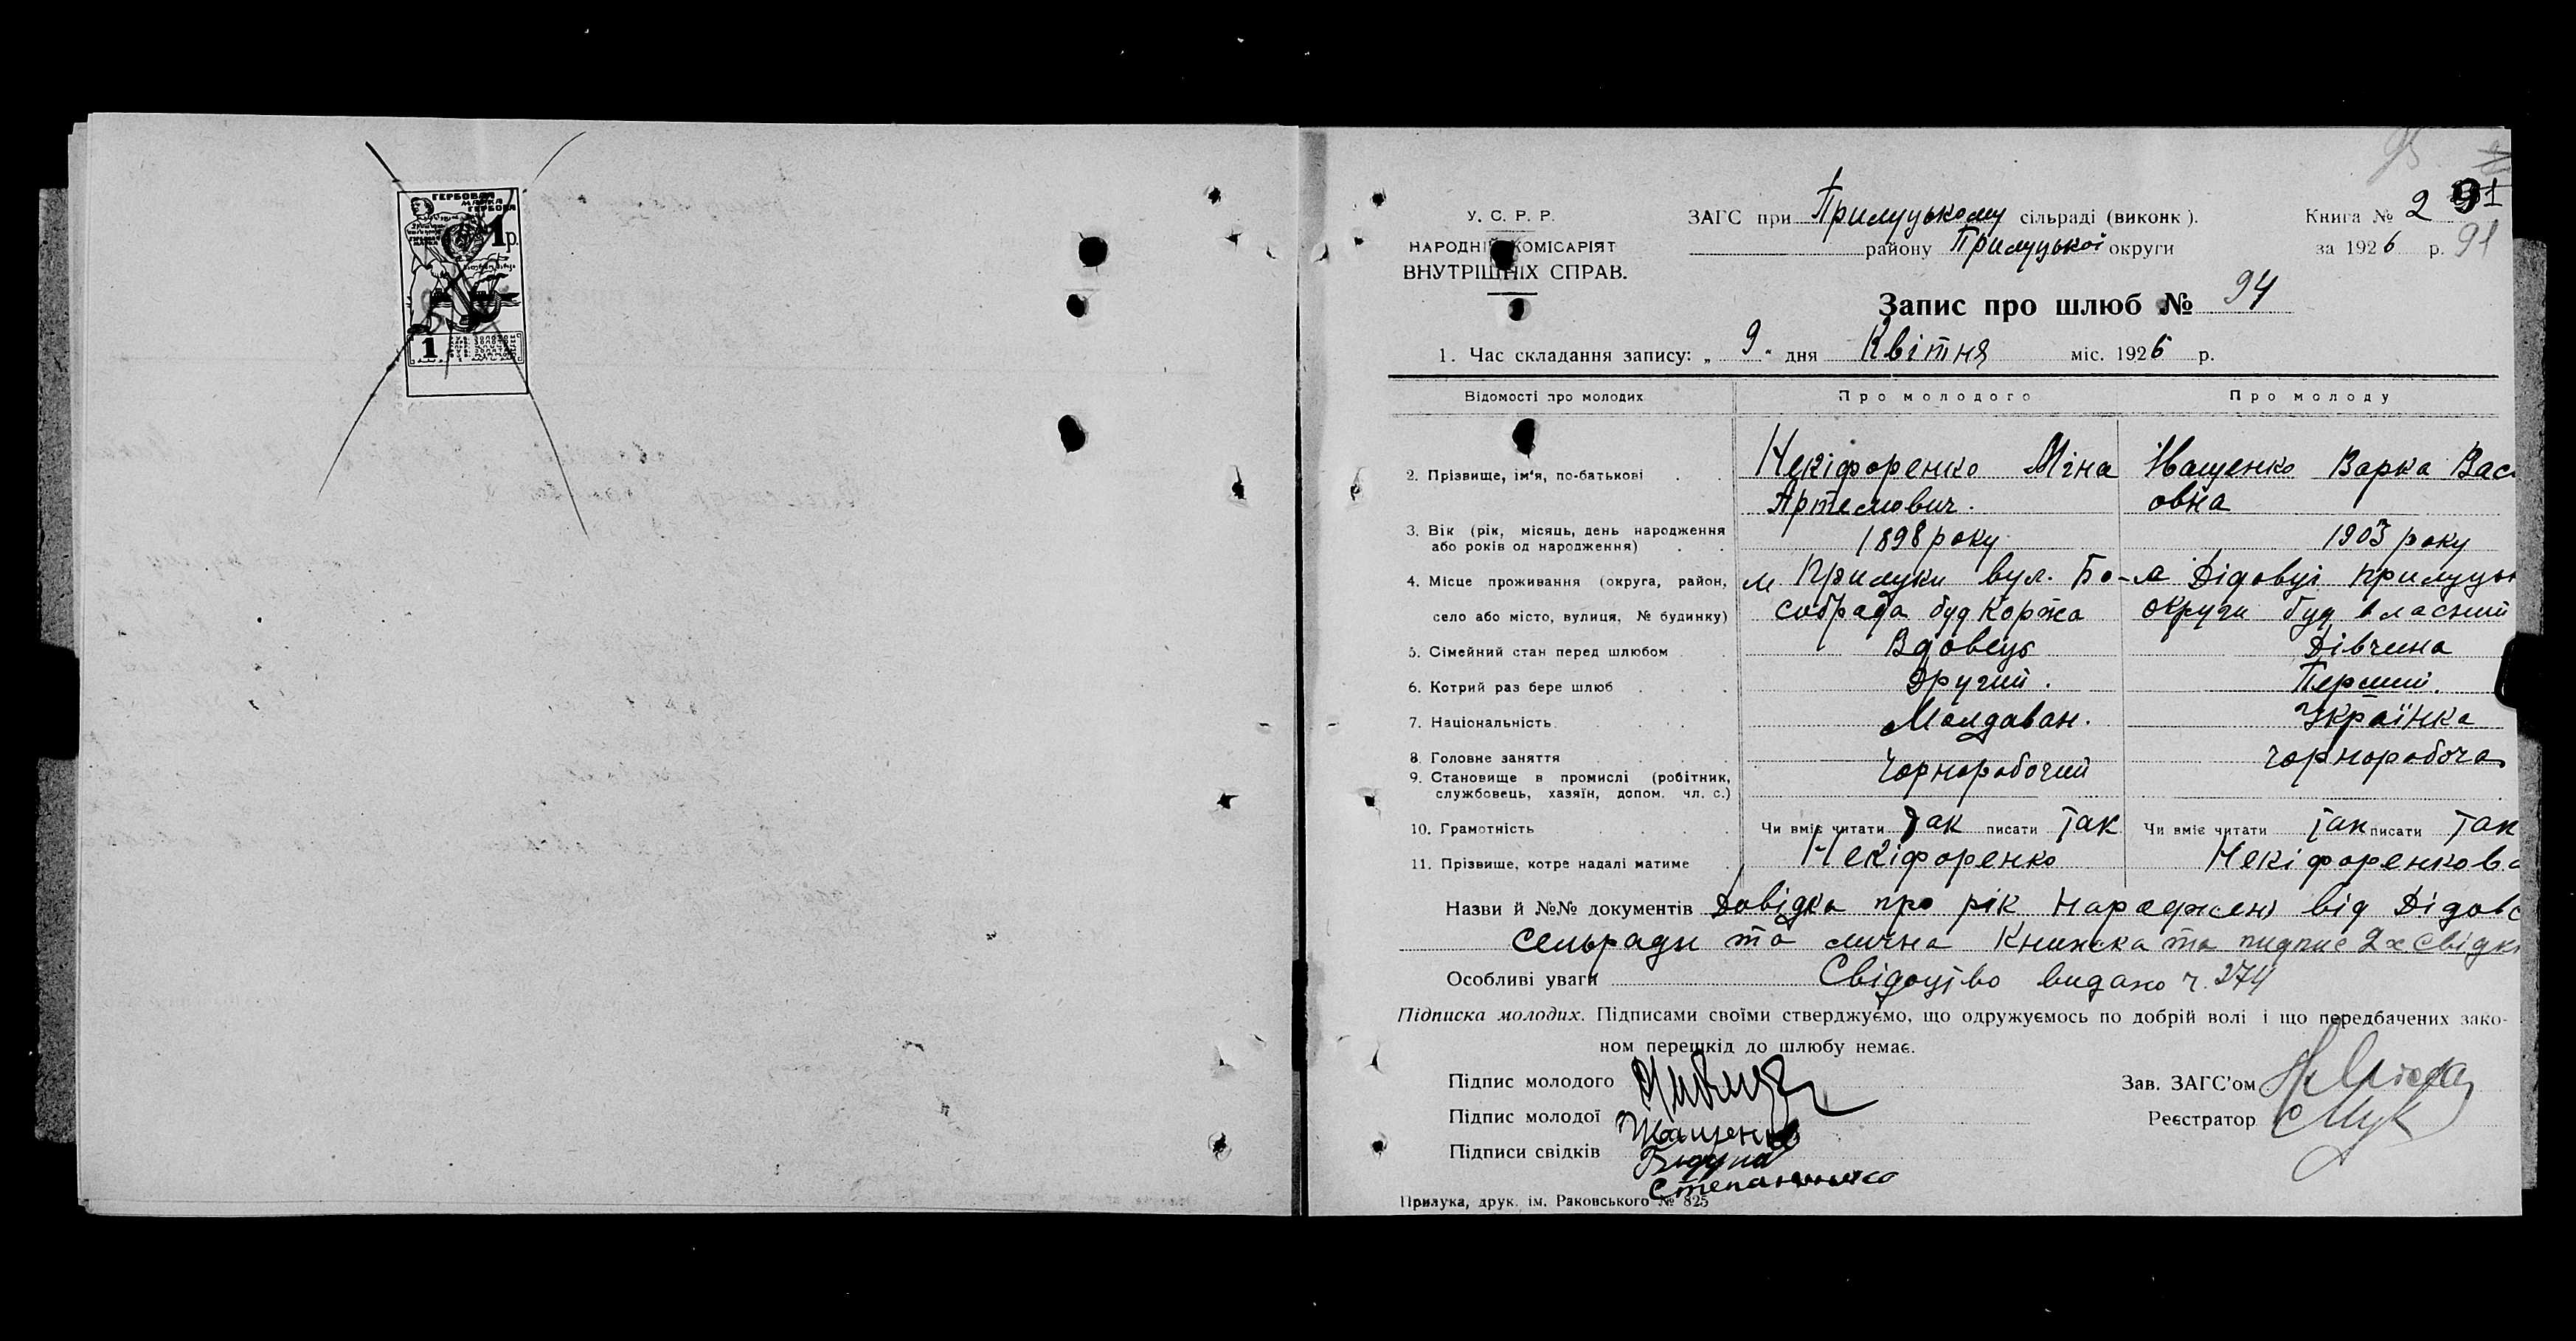 ГЕРБОВАЯ
МАРКА
ГЕРБОВА
1 р.
1
95
91
У. С. Р. Р.
НАРОДНІЙ КОМІСАРІЯТ
ВНУТРІШНІХ СПРАВ.
ЗАГС при Прилуцькому сільраді (виконк).
району Прилуцької округи
Книга № 2
за 1926 р. 91
Запис про шлюб № 94
1. Час складання запису: „ 9 " дня Квітня міс. 1926 р.
Відомості про молодих Про молодого Про молоду
2. Прізвище, ім'я, по-батькові Некіфоренко Міна Іващенко Варка Вас
Артемович. овна
3. Вік (рік, місяць, день народження
або років од народження) 1898 року 1903 року
4. Місце проживання (округа, район, м Прилуки вул. Бо- с Дідовці прилуцьк
село або місто, вулиця, № будинку) собрада буд Коржа округи буд власний
5. Сімейний стан перед шлюбом Вдовець Дівчина
6. Котрий раз бере шлюб Другий. Перший.
7. Національність Молдаван. Українка
8. Головне заняття Чорноробочий чорноробоча
9. Становище в промислі (робітник,
службовець, хазяїн, допом. чл. с.)
10. Грамотність Чи вміє читати Так писати Так Чи вміє читати Так писати Так
11. Прізвище, котре надалі матиме Некіфоренко Некіфоренкова
Назви й №№ документів Довідка про рік нарадженя від Дідовс
сельради та лична Книжка та пидпис 2х свідк
Особливі уваги Свідоцтво видано ч. 274
Підписка молодих. Підписами своїми стверджуємо, що одружуємось по добрій волі і що передбачених зако-
ном перешкід до шлюбу немає.
Підпис молодого
Зав. ЗАГС'ом
Підпис молодої Іващенко
Реєстратор
Підписи свідків
Прилука, друк. ім. Раковського № 825